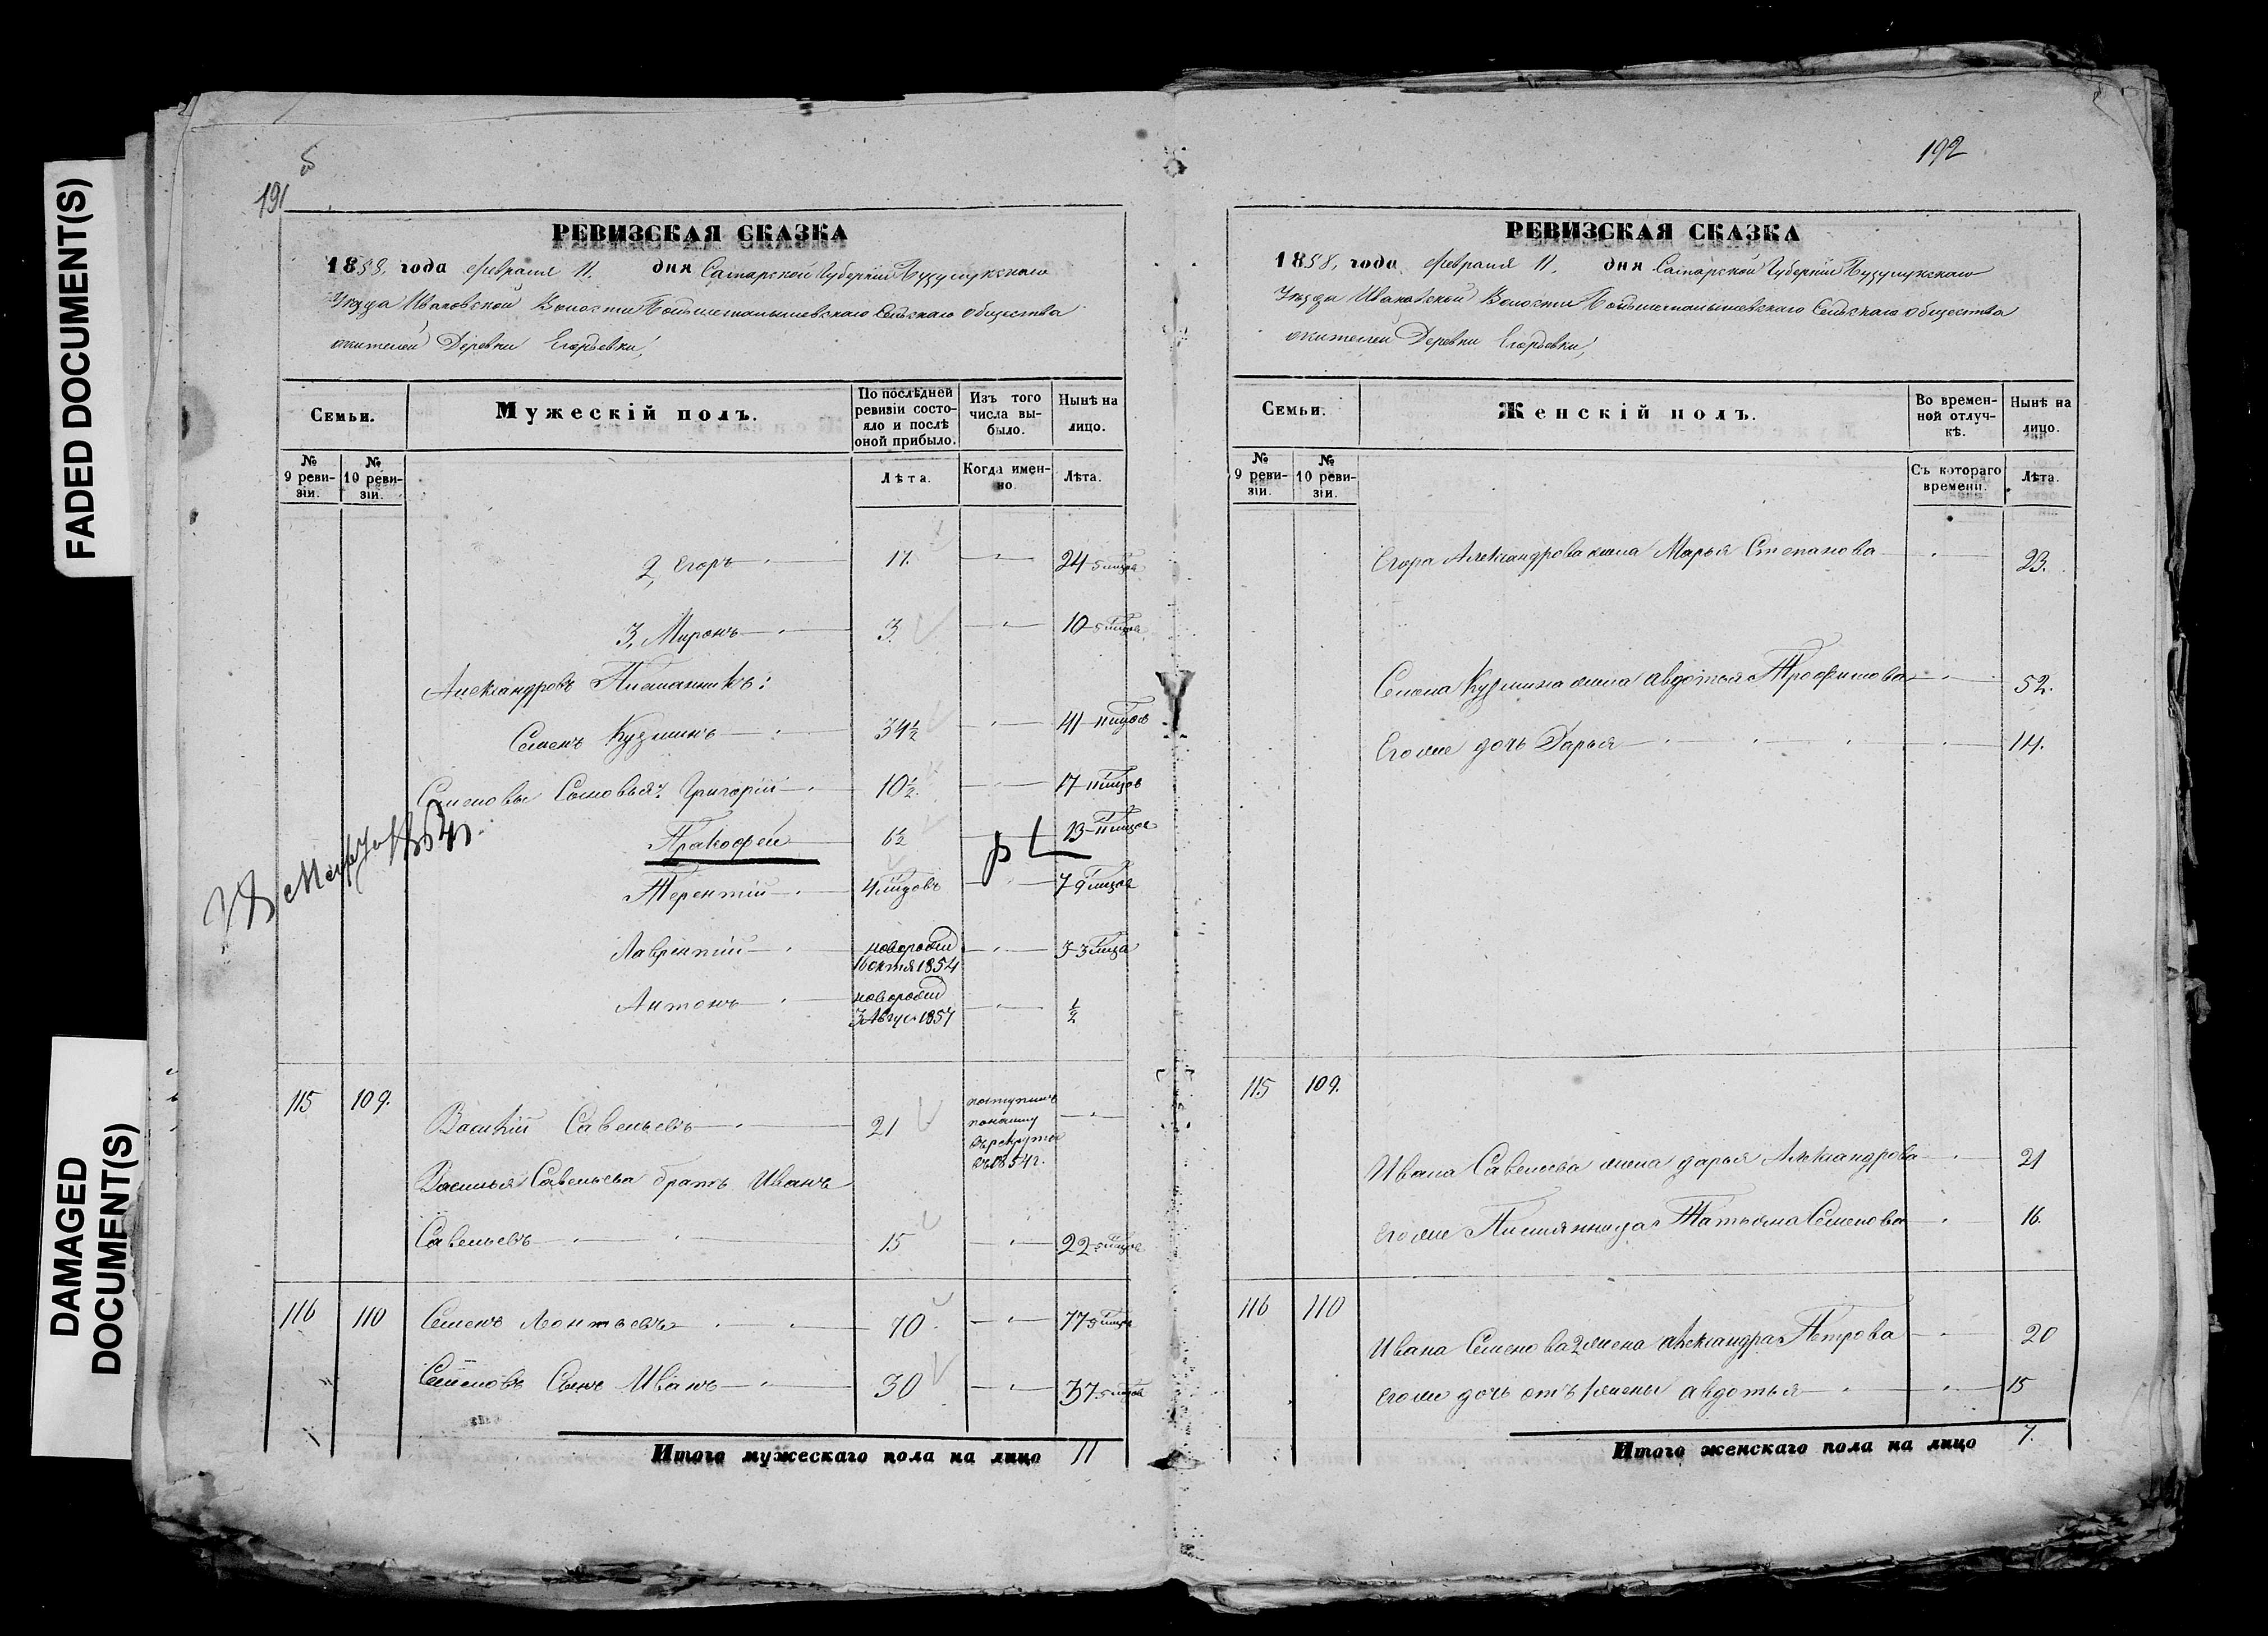 FADED DOCUMENT(S)
DAMAGED
DOCUMENT(S)
191
РЕВИЗСКАЯ СКАЗКА
1858, года февраля 11. дня Самарской Губернии Бузулукскаго
Уезда Ивановской Волости Сельскаго общества
жителей Деревни Егорьевки,
Семьи.
Мужескій полъ.
По послѣдней
ревизіи состо-
яло и послѣ
оной прибыло.
Изъ того
числа вы-
было.
Нынѣ на
лицо.
№
9 реви-
зіи.
№
10 реви-
зіи.
Лѣта.
Когда имен-
но.
Лѣта.
2, Егоръ 17. 24
3, Миронъ 3. 10
Александровъ Племянникъ:
Семенъ Кузминъ 34½ 41
Семеновы Сыновья: Григорій 10½ 17
Прокофей 6½ 13
Терентій 7
Лаврентій новорожд 3
16 октя 1854
Антонъ новорожд ½
3 Авгус 1857
115 109.
Василій Савельевъ 21 поступилъ
въ рекруты
въ 1854 г.
Василья Савельева братъ Иванъ
Савельевъ 15 22
116 110 Семенъ Леонтьевъ 70. 77
Семеновъ Сынъ Иванъ 30 37
Итого мужескаго пола на лицо 11
192
РЕВИЗСКАЯ СКАЗКА
1858, года февраля 11. дня Самарской Губернии Бузулукскаго
Уезда Ивановской Волости Сельскаго общества
жителей Деревни Егорьевки,
Семьи.
Женскій полъ.
Во времен-
ной отлуч-
кѣ.
Нынѣ на
лицо.
№
9 реви-
зіи.
№
10 реви-
зіи.
Съ котораго
времени.
Лѣта.
Егора Александрова жена Марья Степанова 23.
Семена Кузмина жена Авдотья Трофимова 52.
Его же дочь Дарья 14.
115 109.
Ивана Савельева жена Дарья Александрова 21
Его же Племянница Татьяна Семенова 16.
116 110
Ивана Семенова 2 жена Александра Петрова 20
Его же дочь отъ 1 жены Авдотья 15
Итого женскаго пола на лицо 7.